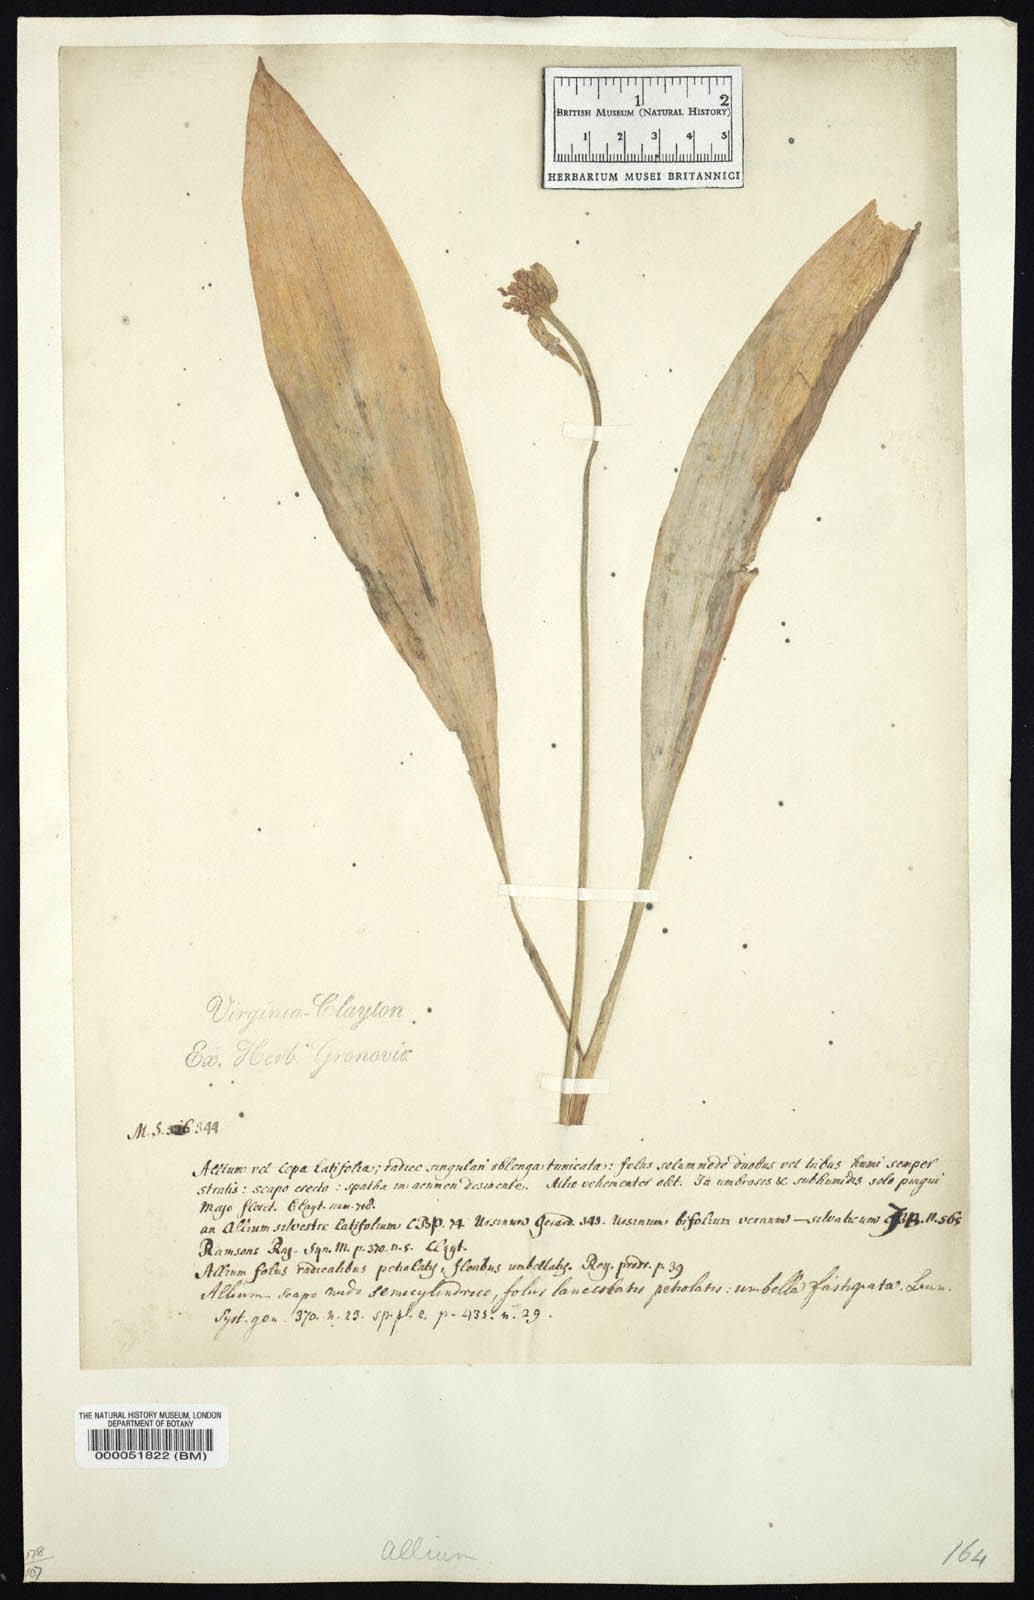 1 2
BRITISH MUSEUM (NATURAL HISTORY)
1 2 3 4 5
HERBARIUM MUSEI BRITANNICI
Virginia - Clayton
Ex. Herb. Gronovii
M. S. 344
Allium vel Cepa latifolia; radice singulari oblonga tunicata: foliis solummodo duobus vel tribus humi semper
stratis: scapo erecto: spatha in acumen desinente. Allio vehementer olet. In umbrosis & subhumidis solo pingui
Majo floret. Clayt. num. 718.
an Allium silvestre latifolium CBp. 74. Ursinum Gerard. 343. Ursinum bifolium vernum — silvaticum JB. II. 565
Ramsons Raj. Syn. III. p. 370. n. 5. Clayt.
Allium foliis radicalibus petiolatis, floribus umbellatis. Roy. prodr. p. 39
Allium scapo nudo semicylindrico, foliis lanceolatis petiolatis: umbella fastigiata. Linn.
Syst. gen. 370. n. 23. sp. pl. p. 431. n. 29.
THE NATURAL HISTORY MUSEUM, LONDON
DEPARTMENT OF BOTANY
000051822 (BM)
Allium
164